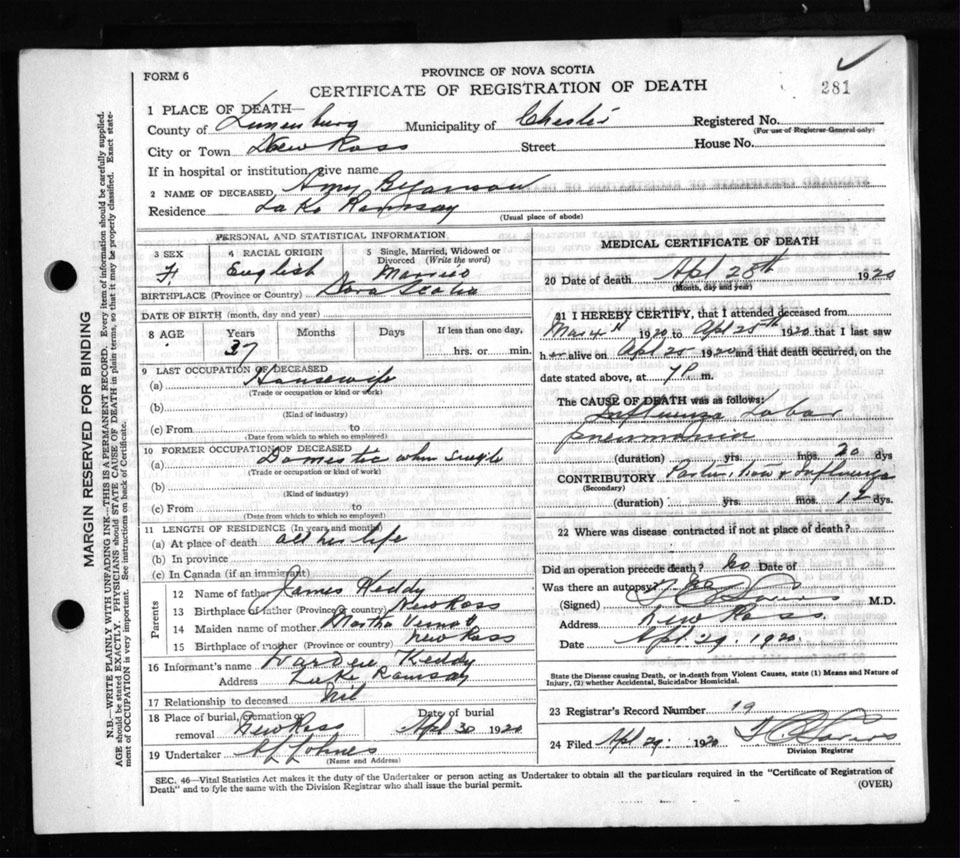 FORM 6
PROVINCE OF NOVA SCOTIA
CERTIFICATE OF REGISTRATION OF DEATH
281
1 PLACE OF DEATH—
County of Lunenburg Municipality of Chester Registered No.
(For use of Registrar-General only)
City or Town New Ross Street House No.
If in hospital or institution, give name
2 NAME OF DECEASED Amy
Residence Lake Ramsay
(Usual place of abode)
PERSONAL AND STATISTICAL INFORMATION
3 SEX F. 4 RACIAL ORIGIN English 5 Single, Married, Widowed or Divorced (Write the word) Married
BIRTHPLACE (Province or Country) Nova Scotia
DATE OF BIRTH (month, day and year)
8 AGE Years 37 Months Days If less than one day, hrs. or min.
9 LAST OCCUPATION OF DECEASED
(a) Housewife
(Trade or occupation or kind or work)
(b)
(Kind of industry)
(c) From to
(Date from which to which so employed)
10 FORMER OCCUPATION OF DECEASED
(a) Domestic when single
(Trade or occupation or kind of work)
(b)
(Kind of industry)
(c) From to
(Date from which to which so employed)
11 LENGTH OF RESIDENCE (In years and months)
(a) At place of death all her life
(b) In province
(c) In Canada (if an immigrant)
Parents
12 Name of father James Keddy
13 Birthplace of father (Province or country) New Ross
14 Maiden name of mother Martha
15 Birthplace of mother (Province or country) New Ross
16 Informant's name Keddy
Address Lake Ramsay
17 Relationship to deceased Nil
18 Place of burial, cremation or removal New Ross Date of burial Apl 30 1920
19 Undertaker
(Name and Address)
MEDICAL CERTIFICATE OF DEATH
20 Date of death Apl 28th 1920
(Month, day and year)
21 I HEREBY CERTIFY, that I attended deceased from
Mar 4th 1920 to Apl 28th 1920 that I last saw
her alive on Apl 28 1920 and that death occurred, on the
date stated above, at 7 P. m.
The CAUSE OF DEATH was as follows:
Influenza Lobar
pneumonia
(duration) yrs. mos. 20 dys
CONTRIBUTORY Parturition & Influenza
(Secondary)
(duration) yrs. mos. dys.
22 Where was disease contracted if not at place of death?
Did an operation precede death? No Date of
Was there an autopsy? No
(Signed) M.D.
Address New Ross
Date Apl. 29. 1920.
State the Disease causing Death, or in death from Violent Causes, state (1) Means and Nature of
Injury, (2) whether Accidental, Suicidal or Homicidal.
23 Registrar's Record Number 19
24 Filed Apl 29. 1920
Division Registrar
SEC. 46—Vital Statistics Act makes it the duty of the Undertaker or person acting as Undertaker to obtain all the particulars required in the "Certificate of Registration of
Death" and to fyle the same with the Division Registrar who shall issue the burial permit.
(OVER)
MARGIN RESERVED FOR BINDING
N.B.—WRITE PLAINLY WITH UNFADING INK—THIS IS A PERMANENT RECORD. Every item of information should be carefully supplied.
AGE should be stated EXACTLY. PHYSICIANS should STATE CAUSE OF DEATH in plain terms, so that it may be properly classified. Exact state-
ment of OCCUPATION is very important. See instructions on back of Certificate.